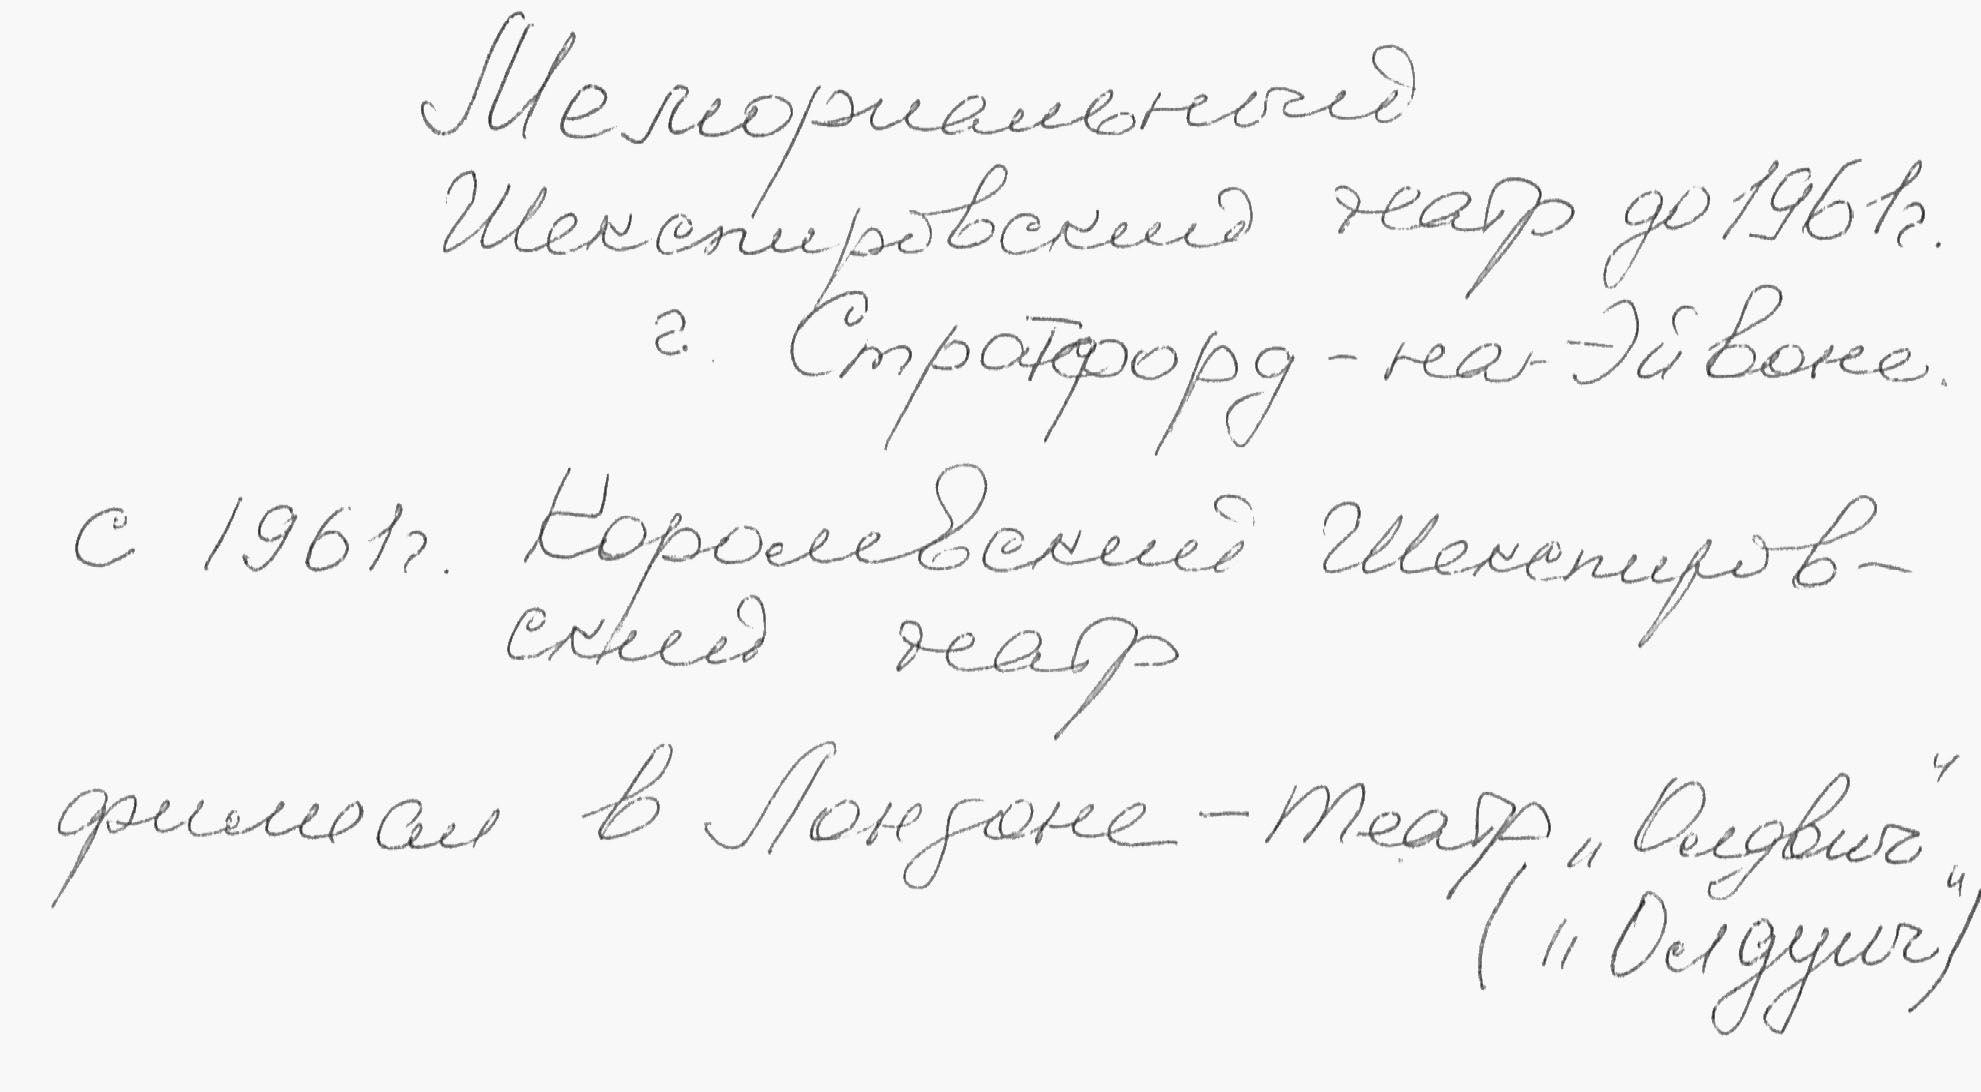 Мемориальный
Шекспировский театр до 1961г.
г. Стратфорд-на-Эйвоне.
с 1961г. Королевский Шекспиров-
ский театр
филиал в Лондоне - театр „Олдвич“
(„Олдуич“)